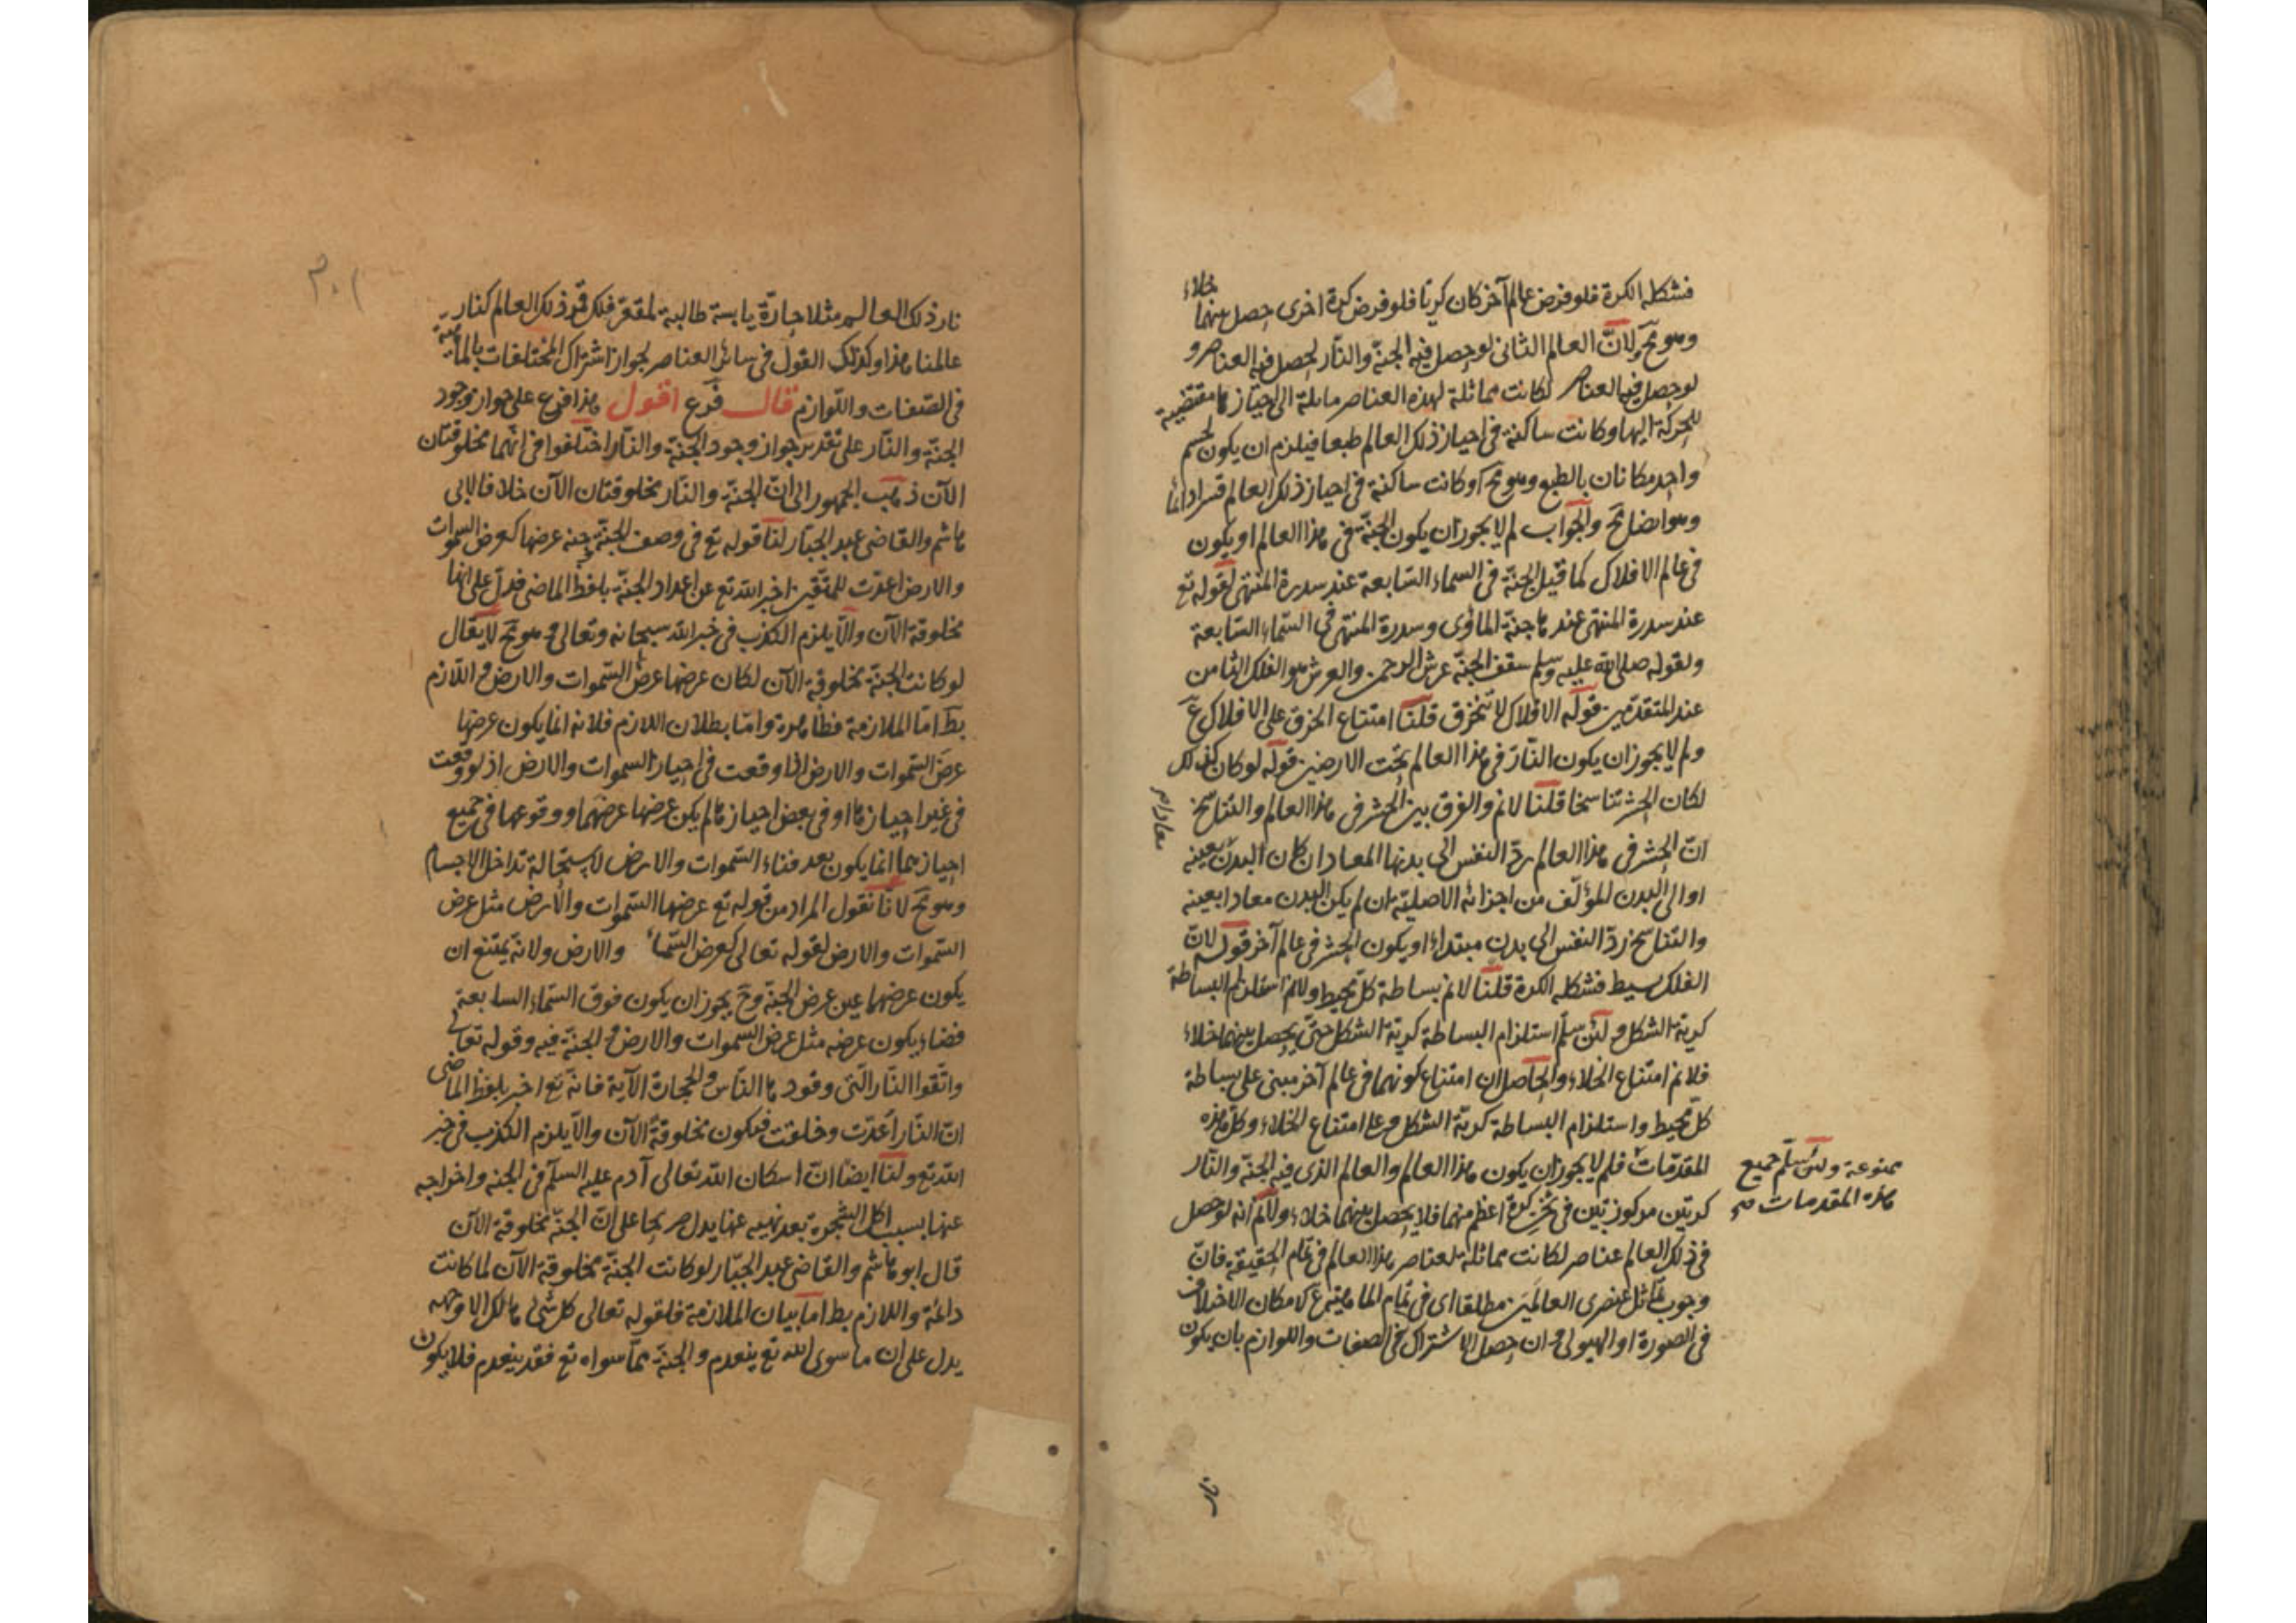 فشكله الكرة فلو فرض عالم آخر كان كريا فلو فرض كرة اخرى حصل بينهما خلاء
وهو مح ولانّ العالم الثانى لو حصل فيه الجنّة والنّار لحصل فيه العناصر و
لو حصل فيه العناصر لكانت مماثلة لهذه العناصر مايلة الى احيازها مقتضية
للحركة اليها وكانت ساكنة فى احياز ذلك العالم طبعا فيلزم ان يكون لجسم
واحد مكانان بالطبع وهو مح او كانت ساكنة فى احياز ذلك العالم قسرا دائما
وهو ايضا مح والجواب لم لا يجوز ان يكون الجنّة فى هذا العالم او يكون
فى عالم الافلاك كما قيل الجنّة فى السماء السّابعة عند سدرة المنتهى لقوله تع
عند سدرة المنتهى عندها جنّة المأوى وسدرة المنتهى فى السّماء السّابعة
ولقوله صلى الله عليه وسلم سقف الجنّة عرش الرحمن والعرش هو الفلك الثامن
عند المتقدمين قوله الافلاك لا تنخرق قلنا امتناع الخرق على الافلاك مح
ولم لا يجوز ان يكون النّار فى هذا العالم تحت الارضين قوله لو كان كذلك
لكان الحشر تناسخا قلنا لا نم والفرق بين الحشر فى هذا العالم والتناسخ
انّ الحشر فى هذا العالم ردّ النفس الى بدنها المعاد ان كان البدن بعينه
معادا م
او الى البدن المؤلّف من اجزائه الاصليّة ان لم يكن البدن معادا بعينه
والتناسخ ردّ النفس الى بدن مبتداء او يكون الحشر فى عالم آخر قوله لانّ
الفلك بسيط فشكله الكرة قلنا لا نم بساطة كل محيط ولا نم استلزام البساطة
كرية الشكل ولئن سلّم استلزام البساطة كريّة الشكل حتى يحصل بينهما خلاء
فلا نم امتناع الخلاء والحاصل ان امتناع كونهما فى عالم آخر مبنى على بساطة
كل محيط واستلزام البساطة كريّة الشكل وعلى امتناع الخلاء وكل هذه
المقدّمات فلم لا يجوز ان يكون هذا العالم والعالم الذى فيه الجنّة والنّار
ممنوعة ولئن سلّم جميع
هذه المقدمات صح
كرتين مركوزتين فى ثخن كرة اعظم منهما فلا يحصل بينهما خلاء ولا نم انه لو حصل
فى ذلك العالم عناصر لكانت مماثلة لعناصر هذا العالم فى تمام الحقيقة فانّ
وجوب تماثل عنصرى العالمين مطلقا اى فى تمام الماهية مح لامكان الاختلاف
فى الصورة او الهيولى وان حصل الاشتراك فى الصفات واللوازم بان يكون
نار
٣٠١
نار ذلك العالم مثلا حارّة يابسة طالبة لمقعّر فلك قمر ذلك العالم كنار
عالمنا هذا وكذلك القول فى سائر العناصر لجواز اشتراك المختلفات بالماهية
فى الصّفات واللّوازم قال فرع اقول هذا فرع على جواز وجود
الجنّة والنّار على تقدير جواز وجود الجنّة والنّار اختلفوا فى انّهما مخلوقتان
الآن ذهب الجمهور الى انّ الجنّة والنّار مخلوقتان الآن خلافا لابى
هاشم والقاضى عبد الجبّار لنا قوله تع فى وصف الجنّة وجنة عرضها كعرض السموات
والارض اعدّت للمتّقين اخبر الله تع عن اعداد الجنّة بلفظ الماضى فدلّ على انّها
مخلوقة الآن والّا يلزم الكذب فى خبر الله سبحانه وتعالى وهو مح لا يقال
لو كانت الجنّة مخلوقة الآن لكان عرضها عرض السّموات والارض واللازم
بط امّا الملازمة فظاهرة وامّا بطلان اللازم فلانه انما يكون عرضها
عرض السّموات والارض اذا وقعت فى احياز السموات والارض اذ لو وقعت
فى غير احيازها او فى بعض احيازها لم يكن عرضها عرضهما ووقوعها فى جميع
احيازهما انّما يكون بعد فناء السّموات والارض لاستحالة تداخل الاجسام
وهو مح لانّا نقول المراد من قوله تع عرضها السّموات والأرض مثل عرض
السّموات والارض لقوله تعالى كعرض السّماء والارض ولانّه يمتنع ان
يكون عرضهما عين عرض الجنّة وح يجوز ان يكون فوق السّماء السابعة
فضاء يكون عرضه مثل عرض السموات والارض والجنّة فيه وقوله تعالى
واتّقوا النّار الّتى وقودها النّاس والحجارة الآية فانّه تع اخبر بلفظ الماضى
انّ النّار أعدّت وخلقت فيكون مخلوقة الآن والّا يلزم الكذب فى خبر
الله تع ولنا ايضا انّ اسكان الله تعالى آدم عليه السلام فى الجنة واخراجه
عنها بسبب اكل الشجرة بعد نهيه عنها يدل صريحا على انّ الجنّة مخلوقة الآن
قال ابو هاشم والقاضى عبد الجبّار لو كانت الجنّة مخلوقة الآن لما كانت
دائمة واللازم بط امّا بيان الملازمة فلقوله تعالى كل شىء هالك الا وجهه
يدل على ان ما سوى الله تع ينعدم والجنّة ممّا سواه تع فقد ينعدم فلا يكون